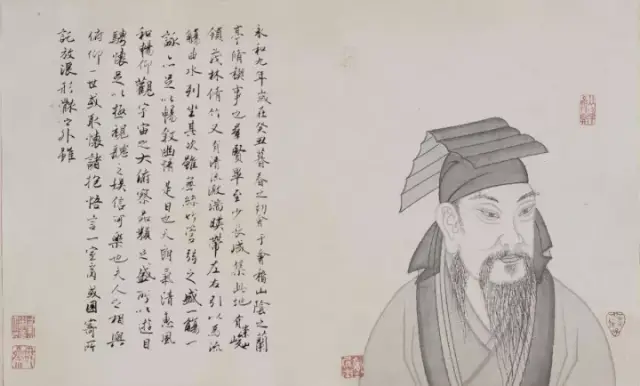 永和九年歲在癸丑暮春之初會于會稽山陰之蘭
亭脩禊事也羣賢畢至少長咸集此地有崇山峻
領茂林脩竹又有清流激湍暎帶左右引以為流
觴曲水列坐其次雖無絲竹管弦之盛一觴一
詠亦足以暢敘幽情是日也天朗氣清惠風
和暢仰觀宇宙之大俯察品類之盛所以遊目
騁懷足以極視聽之娛信可樂也夫人之相與
俯仰一世或取懷諸抱悟言一室內或因寄所
託放浪形骸之外雖